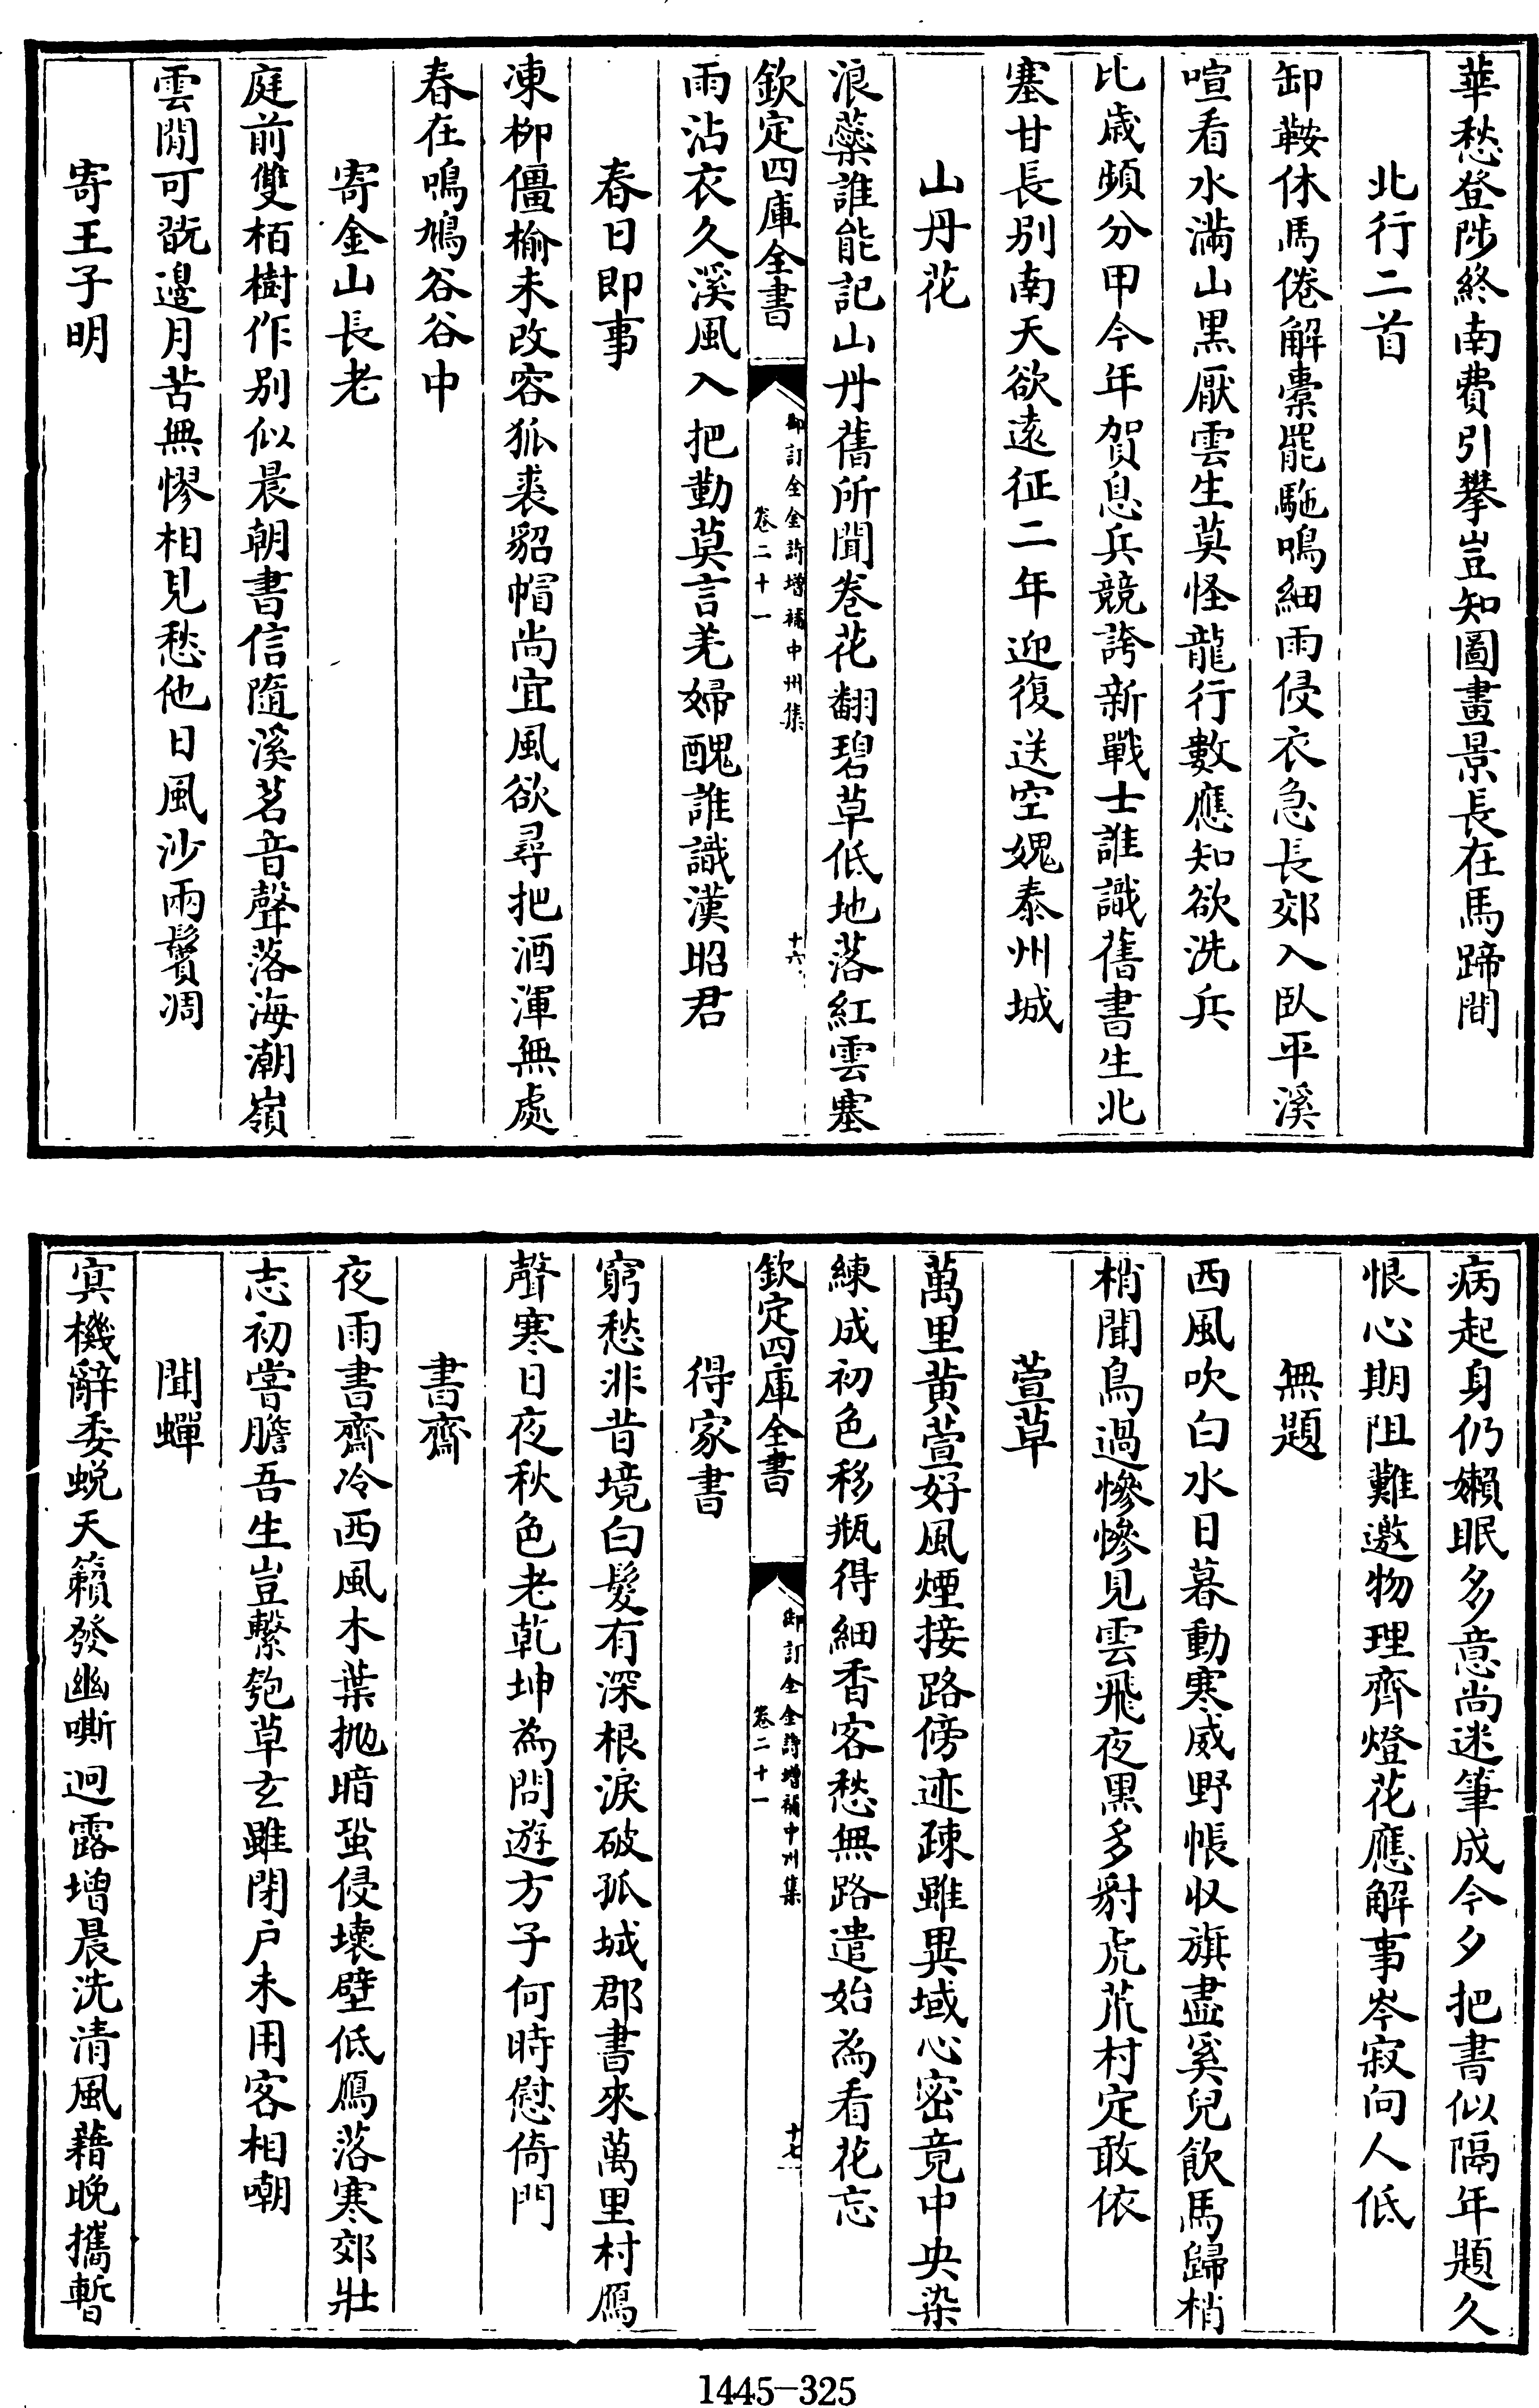 華愁登陟終南費引攀豈知圖畫景長在馬蹄間
北行二首
卸鞍休馬倦解橐罷馳鳴細雨侵衣急長郊入臥平溪
喧看水滿山黑厭雲生莫怪龍行數應知欲洗兵
比歲頻分甲今年賀息兵競誇新戰士誰識舊書生北
塞甘長别南天欲遠征二年迎復送空媿泰州城
山丹花
浪蘂誰能記山丹舊所聞卷花翻碧草低地落紅雲塞
欽定四庫全書
御訂全金詩增補中州集
卷二十一
十六
雨沾衣久溪風入把勤莫言羌婦醜誰識漢昭君
春日即事
凍柳僵榆未改容狐裘貂帽尚宜風欲尋把酒渾無處
春在鳴鳩谷谷中
寄金山長老
庭前雙栢樹作别似晨朝書信隨溪茗音聲落海潮嶺
雲閒可翫邉月苦無憀相見愁他日風沙兩鬢凋
寄王子明
病起身仍嬾眠多意尚迷筆成今夕把書似隔年題久
恨心期阻難邀物理齊燈花應解事岑寂向人低
無題
西風吹白水日暮動寒威野帳収旗盡奚兒飲馬歸梢
梢聞鳥過慘慘見雲飛夜黒多豺虎荒村定敢依
萱草
萬里黄萱好風煙接路傍迹疎雖異域心密竟中央染
練成初色移瓶得細香客愁無路遣始為看花忘
欽定四庫全書
御訂全金詩增補中州集
卷二十一
十七
得家書
窮愁非昔境白髮有深根淚破孤城郡書來萬里村鴈
聲寒日夜秋色老乾坤為問遊方子何時慰倚門
書齋
夜雨書齋冷西風木葉抛暗蛩侵壊壁低鴈落寒郊壯
志初嘗膽吾生豈繫匏草玄雖閉户未用客相嘲
聞蟬
寘機辭委蛻天籟發幽嘶迥露增晨洗清風藉晚攜暫
1445-325